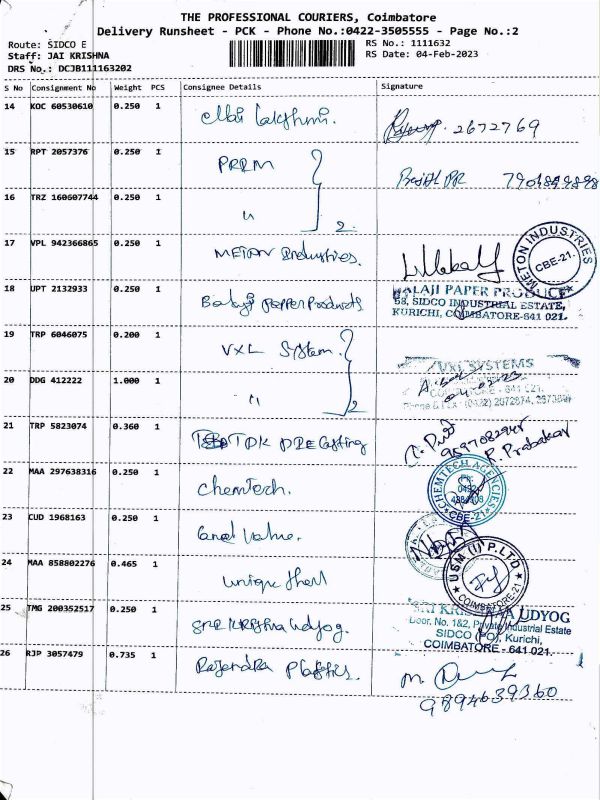 THE PROFESSIONAL COURIERS, Coimbatore
Delivery Runsheet - PCK - Phone No.:0422-3505555 - Page No.:2
Route: SIDCO E
Staff: JAI KRISHNA
DRS No.: DCJB111163202
RS No.: 1111632
RS Date: 04-Feb-2023
S No Consignment No Weight PCS Consignee Details Signature
14 KOC 60530610 0.250 1 Lakshmi. 2672769
15 RPT 2057376 0.250 1 PRRM
16 TRZ 160607744 0.250 1 " 2
17 VPL 942366865 0.250 1 METON Industries.
METON INDUSTRIES
CBE-21.
18 UPT 2132933 0.250 1 Balaji Paper Products
BALAJI PAPER PRODUCTS
B8, SIDCO INDUSTRIAL ESTATE,
KURICHI, COIMBATORE-641 021.
19 TRP 6046075 0.200 1 VXL System.
VXL SYSTEMS
20 DDG 412222 1.000 1 " 2
COIMBATORE - 641 021.
21 TRP 5823074 0.360 1 TDK DIE Casting
9597082945
P. Prabakar
22 MAA 297638316 0.250 1 Chemtech.
CHEMTECH AGENCIES
CBE-21
23 CUD 1968163 0.250 1 Value.
24 MAA 858802276 0.465 1 Unique Shell
USM (I) P.LTD
COIMBATORE-21
25 TMG 200352517 0.250 1 Sri Krishna Udyog.
SRI KRISHNA UDYOG
Door. No. 1&2, Private Industrial Estate
SIDCO (PO), Kurichi,
COIMBATORE - 641 021.
26 RJP 3057479 0.735 1 Rajendra Plastics.
9894639360